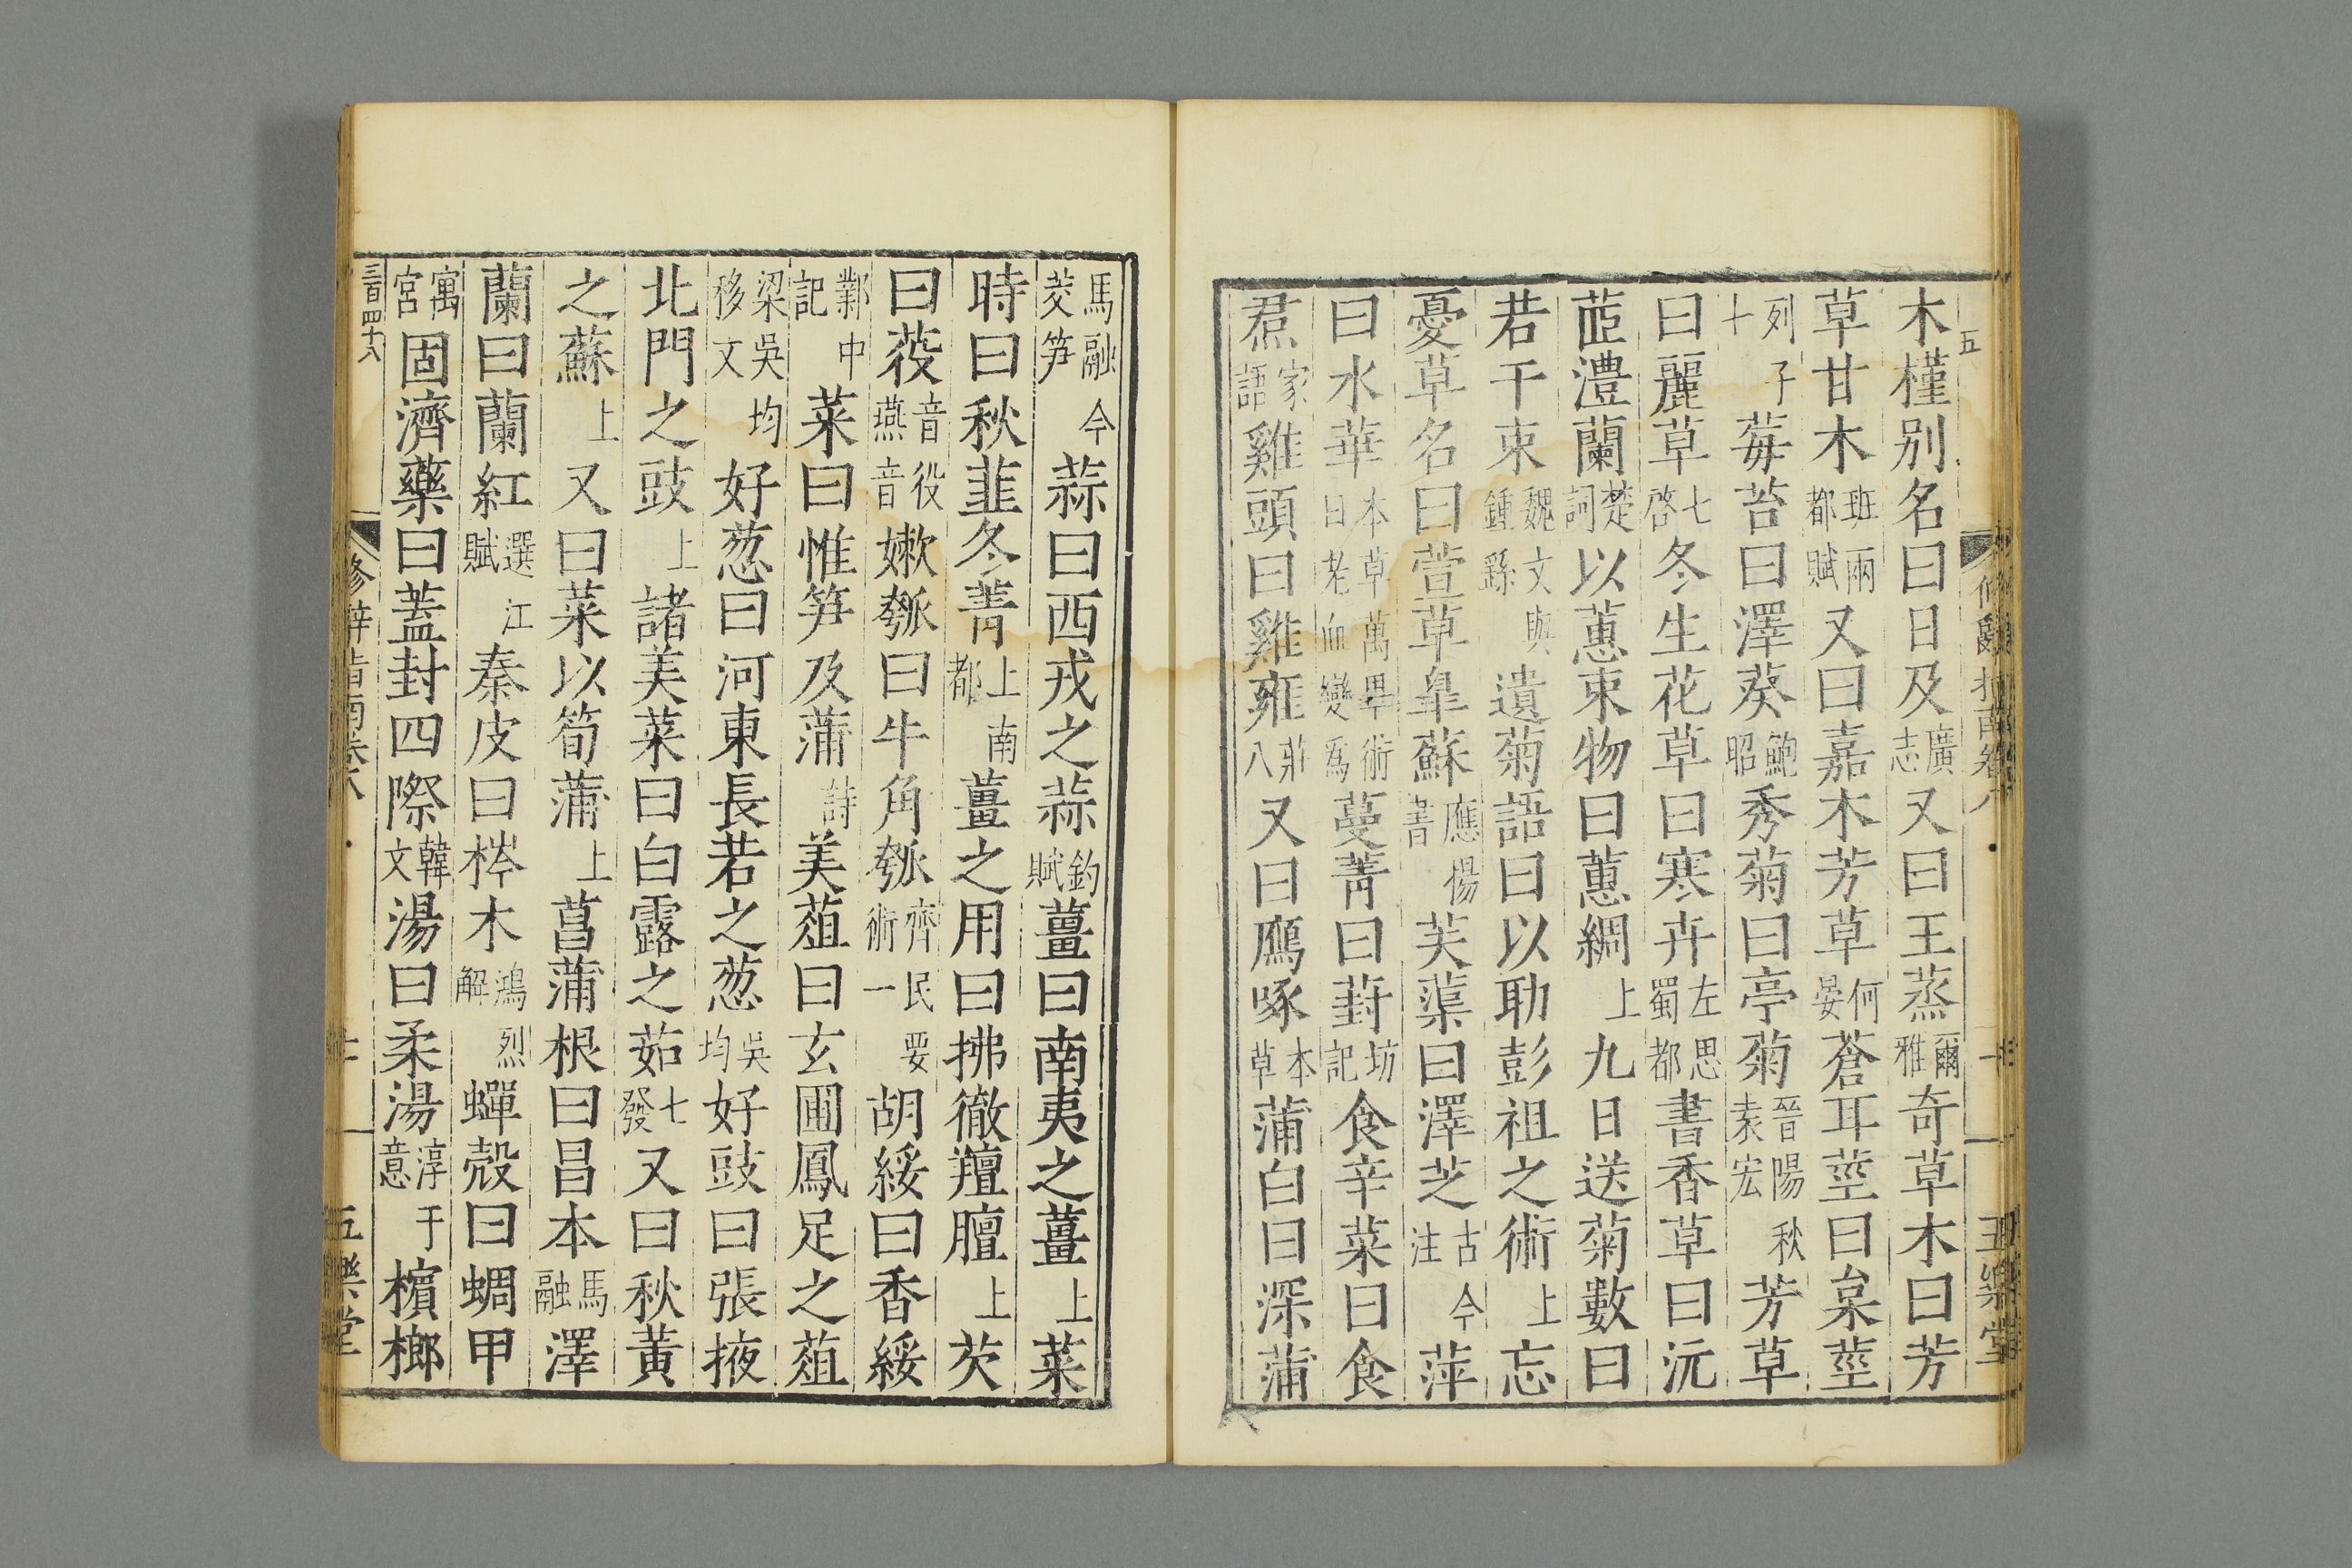 木槿别名曰日及廣志又曰王蒸爾雅奇草木曰芳
草甘木班兩都賦又曰嘉木芳草何晏蒼耳莖曰枲莖
列子十莓苔曰澤葵鮑昭秀菊曰亭菊晉陽秋袁宏芳草
曰麗草七啓冬生花草曰寒卉左思蜀都書香草曰沅
茝澧蘭楚詞以蕙束物曰蕙綢上九日送菊數曰
若干束魏文與鍾繇遺菊語曰以助彭祖之術上忘
憂草名曰萱草臯蘇應楊書芙蕖曰澤芝古今注萍
曰水華本草萬畢術曰老血變爲蔓菁曰葑坊記食辛菜曰食
焄家語雞頭曰雞雍莊八又曰鴈啄本草蒲白曰深蒲
馬融 今茭笋蒜曰西戎之蒜釣賦薑曰南夷之薑上菜
時曰秋韮冬菁上南都薑之用曰拂徹羶膻上芡
曰䓈音役燕音嫰瓠曰牛角瓠齊民要術一胡綏曰香綏
鄴中記菜曰惟笋及蒲詩美葅曰玄圃鳳足之葅
梁吳均移文好葱曰河東長若之葱吳均好豉曰張掖
北門之豉上諸美菜曰白露之茹七發又曰秋黃
之蘇上又曰菜以筍蒲上菖蒲根曰昌本馬融澤
蘭曰蘭紅選江賦秦皮曰梣木鴻烈解蟬殼曰蜩甲
寓宮固濟藥曰蓋封四際韓文湯曰柔湯淳于意檳榔
三百四十八
修辭指南卷八
五樂堂